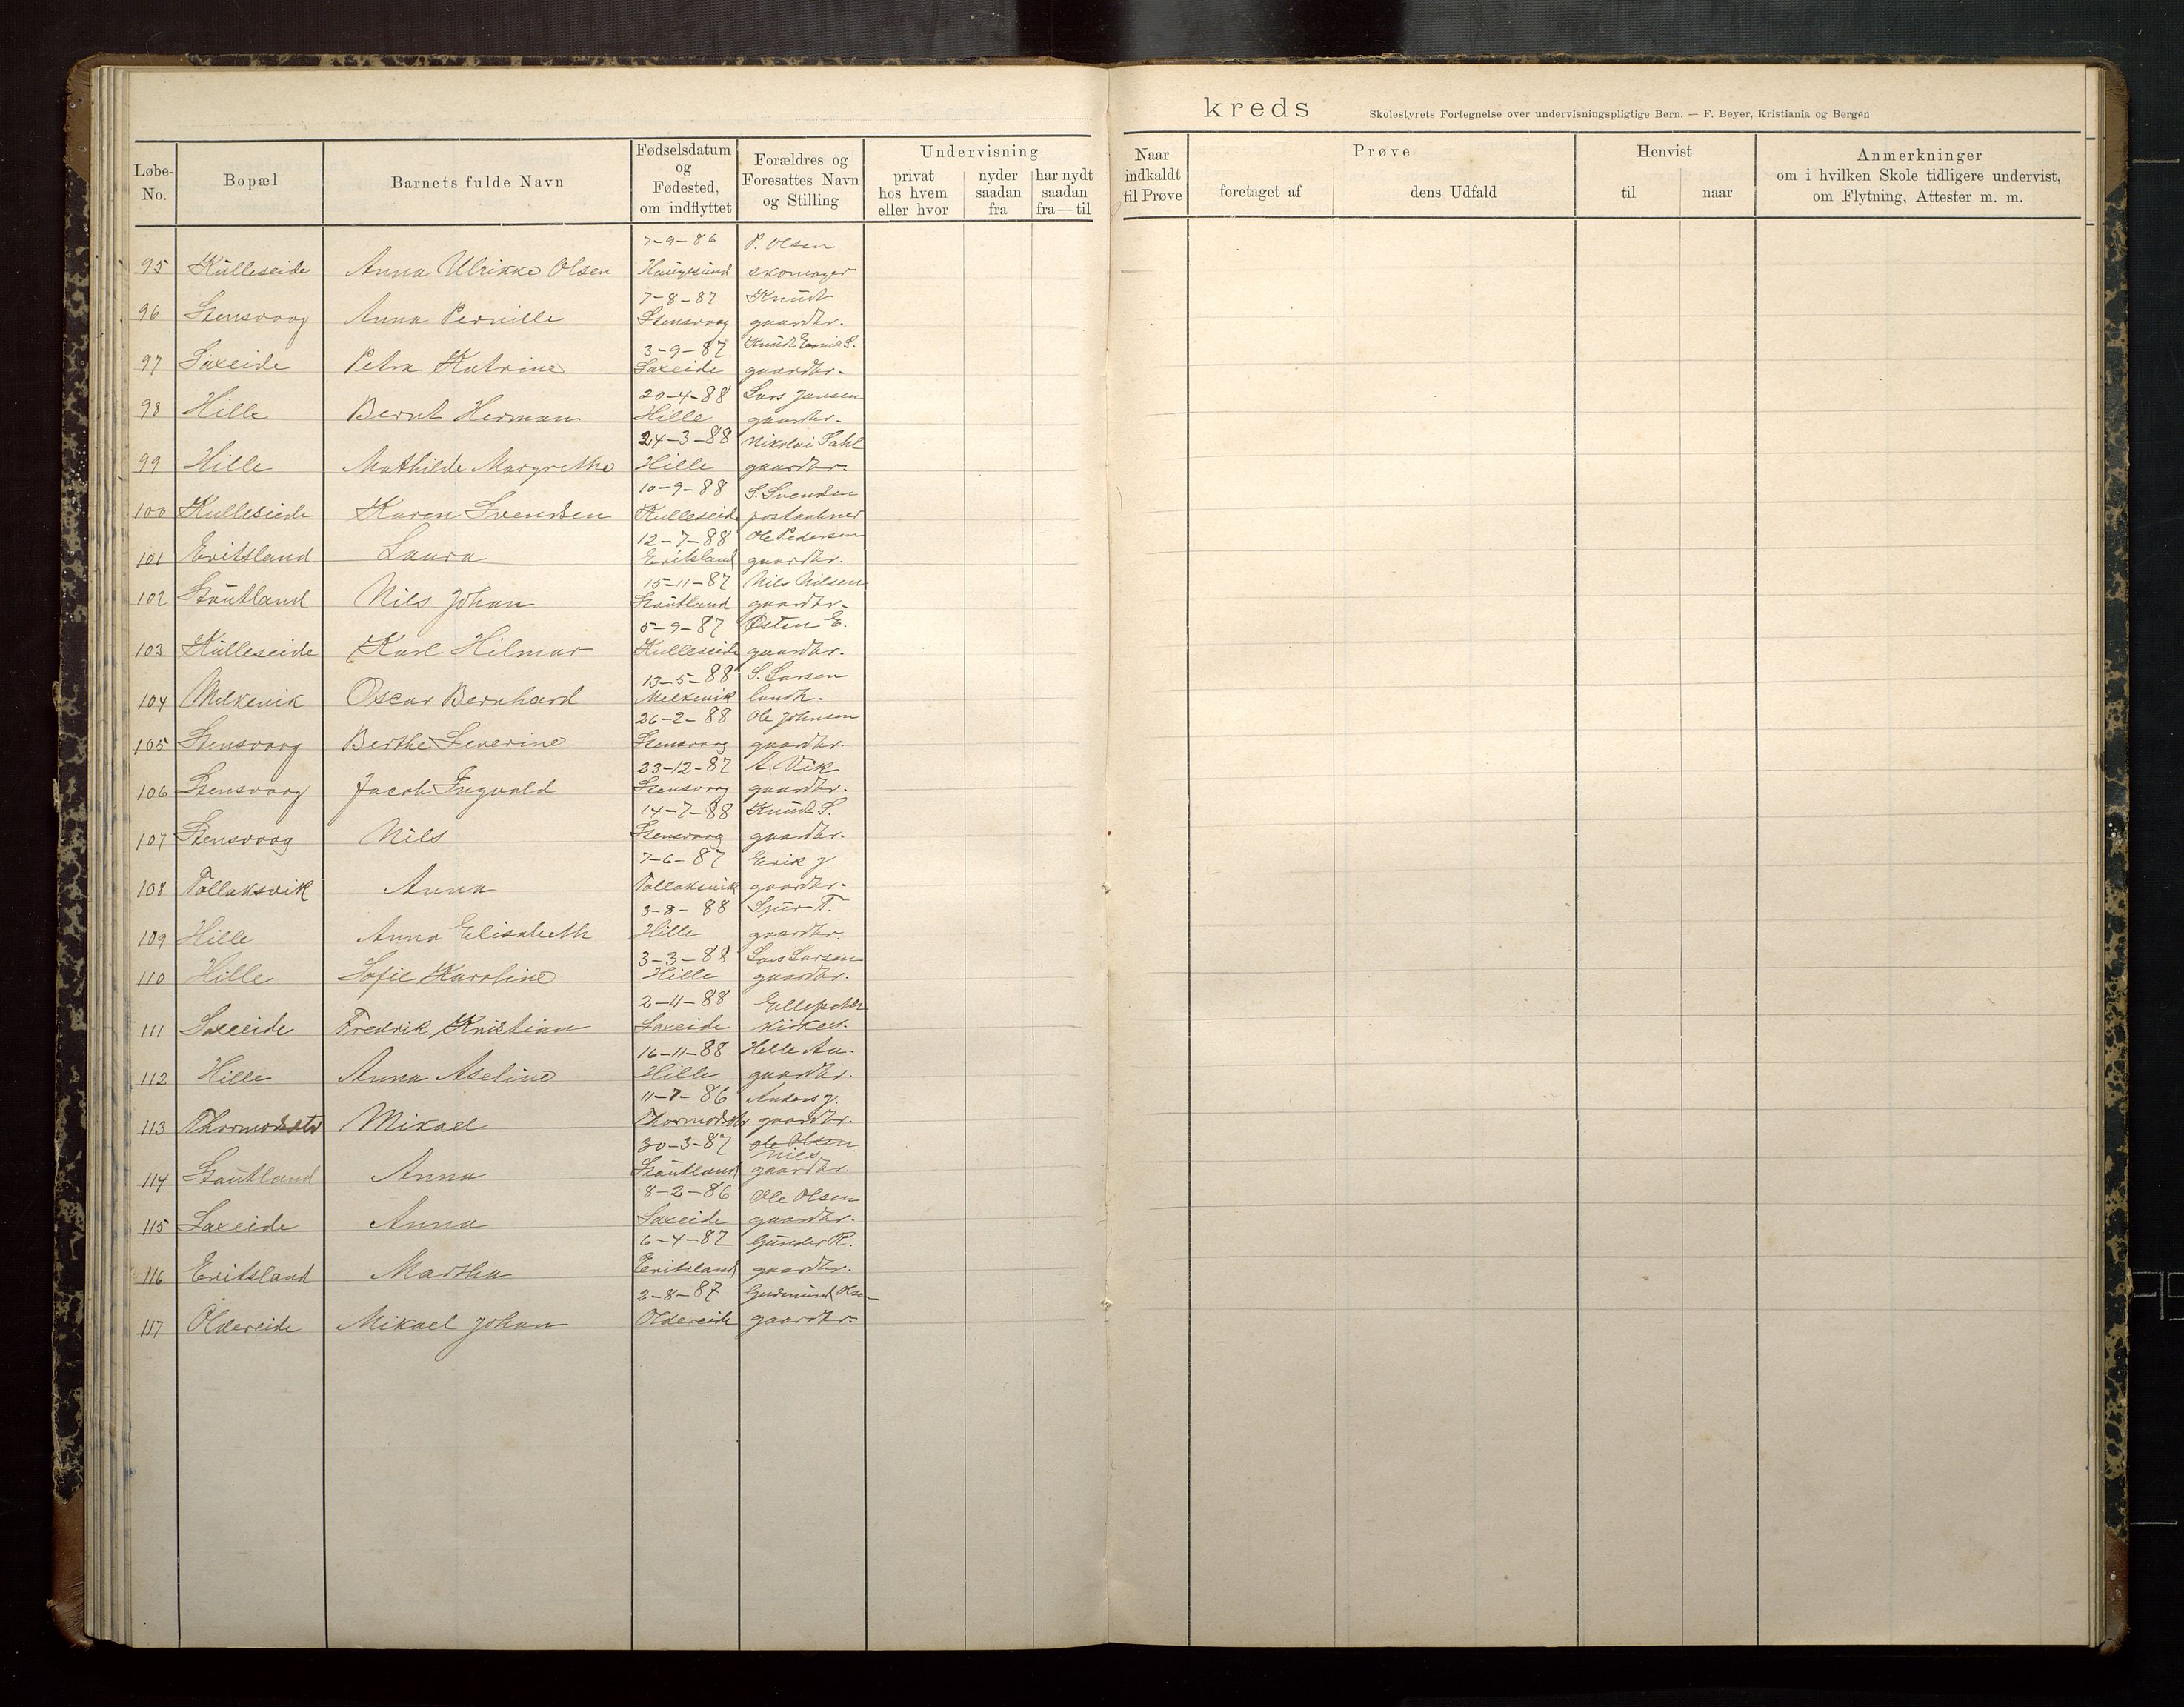 kreds Skolestyrets Fortegnelse over undervisningspligtige Børn. — F. Beyer, Kristiania og Bergen
Løbe-No. Bopæl Barnets fulde Navn Fødselsdatum og Fødested, om indflyttet Forældres og Foresattes Navn og Stilling Undervisning privat hos hvem eller hvor nyder saadan fra har nydt saadan fra—til Naar indkaldt til Prøve Prøve foretaget af dens Udfald Henvist til naar Anmerkninger om i hvilken Skole tidligere undervist, om Flytning, Attester m. m.
7-9-86 P. Olsen
95 Kulleseide Anna Ulrikke Olsen Haugesund skomager
7-8-87 Knud
96 Stensvaag Anna Pernille Stensvaag gaardbr.
3-9-87 Knud S.
97 Saxeide Petra Katrine Saxeide gaardbr.
20-4-88 Lars Jansen
98 Hille Bernt Herman Hille gaardbr.
24-3-88 Nikolai Sahl
99 Hille Mathilde Margrethe Hille gaardbr.
10-9-88 S. Svendsen
100 Kulleseide Karen Svendsen Kulleseide postaabner
12-7-88 Ole Pedersen
101 Eritsland Laura Eritsland gaardbr.
15-11-87 Nils Nilsen
102 Stautland Nils Johan Stautland gaardbr.
5-9-87 Østen E.
103 Kulleseide Karl Hilmar Kulleseide gaardbr.
13-5-88 S. Larsen
104 Melkevik Oscar Bernhard Melkevik landh.
26-2-88 Ole Johnsen
105 Stensvaag Berthe Severine Stensvaag gaardbr.
23-12-87 A. Vik
106 Stensvaag Jacob Ingvald Stensvaag gaardbr.
14-7-88 Knud S.
107 Stensvaag Nils Stensvaag gaardbr.
7-6-87 Erik J.
108 Tollaksvik Anna Tollaksvik gaardbr.
3-8-88 T.
109 Hille Anna Elisabeth Hille gaardbr.
3-3-88 Lars Larsen
110 Hille Sofie Karoline Hille gaardbr.
2-11-88
111 Saxeide Fredrik Kristian Saxeide kirkes.
16-11-88
112 Hille Anna Aseline Hille gaardbr.
11-7-86 Anders J.
113 Mikael gaardbr.
30-3-87 Ole Olsen
Nils
114 Stautland Anna Stautland gaardbr.
8-2-86 Ole Olsen
115 Saxeide Anna Saxeide gaardbr.
6-4-87 Gunder R.
116 Eritsland Martha Eritsland gaardbr.
2-8-87 Gudmund Olsen
117 Oldereide Mikael Johan Oldereide gaardbr.